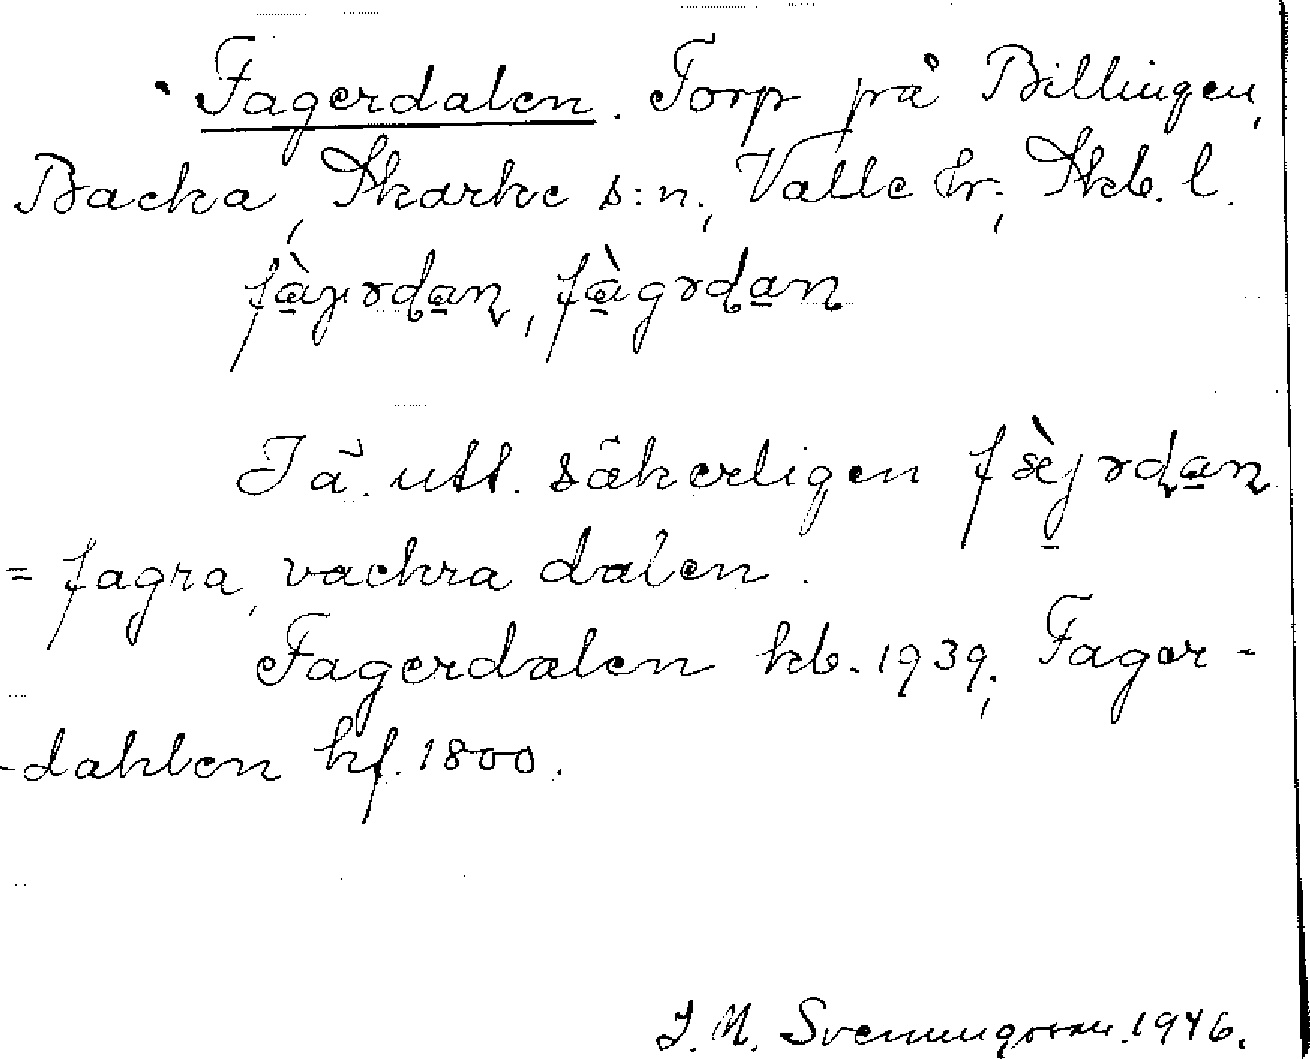 Fagerdalen. Torp på Billingen,
Backa, Skarke s:n, Valle hr, Skb. l.
fàjərdan, fàgərdan
Tä. utt. säkerligen fæ̀jərdan
= fagra, vackra dalen.
Fagerdalen kb. 1939; Fager-
-dahlen hf. 1800.
J. M. Svenungsson. 1946.